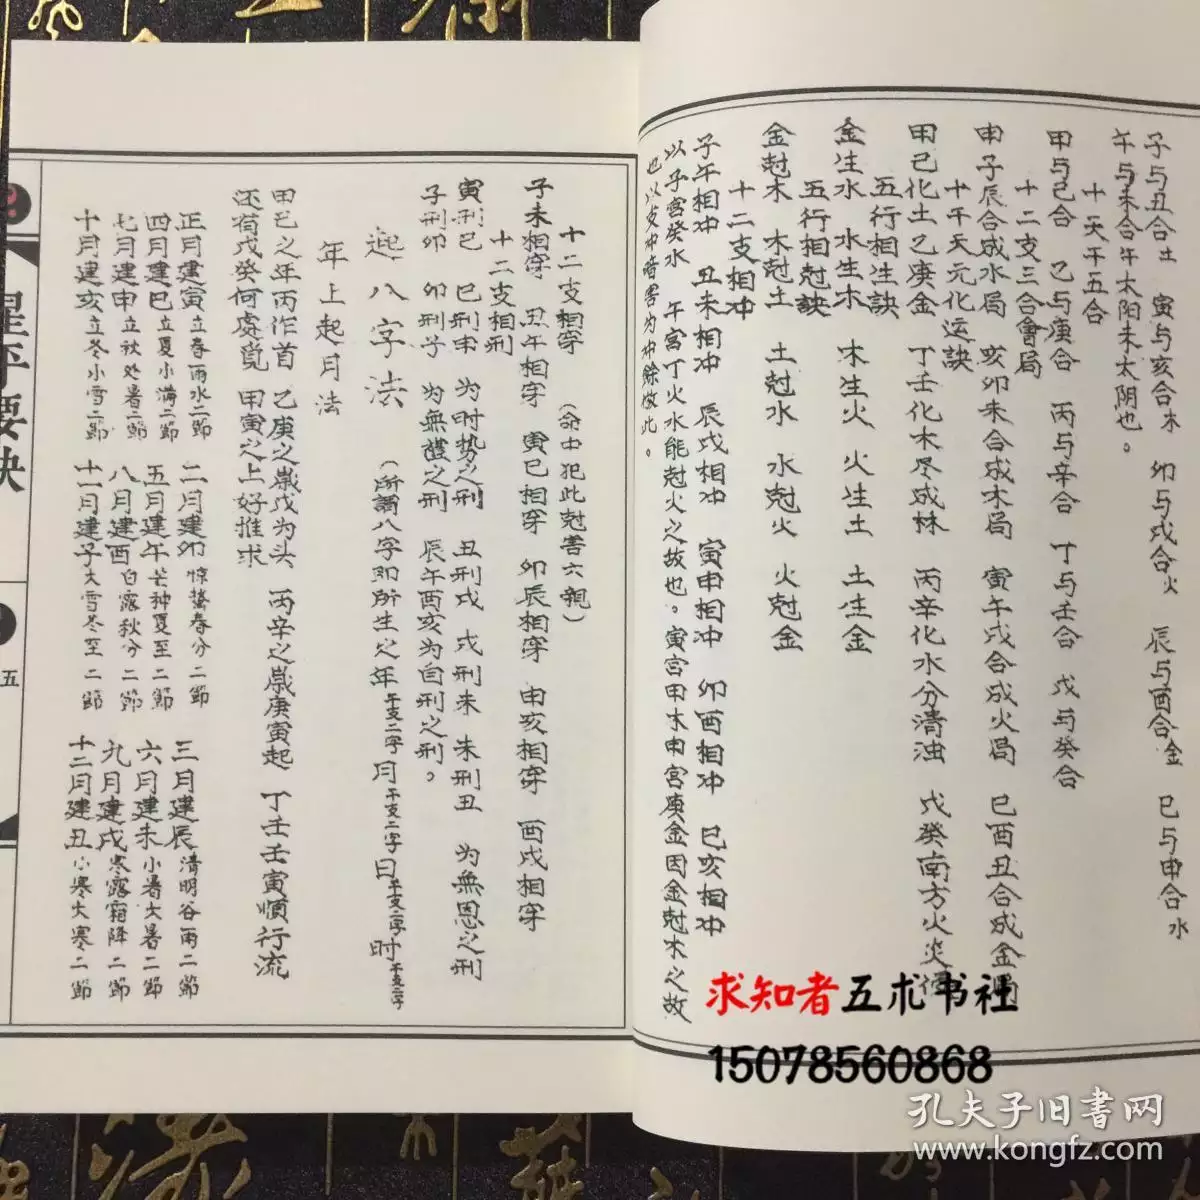 子与丑合土　寅与亥合木　卯与戌合火　辰与酉合金　巳与申合水
午与未合午太阳未太阴也。
十天干五合
甲与己合　乙与庚合　丙与辛合　丁与壬合　戊与癸合
十二支三合會局
申子辰合成水局　亥卯未合成木局　寅午戌合成火局　巳酉丑合成金局
十干天元化运訣
甲己化土乙庚金　丁壬化木尽成林　丙辛化水分清浊　戊癸南方火炎
五行相生訣
金生水　水生木　木生火　火生土　土生金
五行相尅訣
金尅木　木尅土　土尅水　水尅火　火尅金
十二支相冲
子午相冲　丑未相冲　辰戌相冲　寅申相冲　卯酉相冲　巳亥相冲
以子宫癸水　午宫丁火水能尅火之故也。寅宫甲木申宫庚金因金尅木之故
也以支中暗害为冲餘倣此。
十二支相穿　（命中犯此尅害六親）
子未相穿　丑午相穿　寅巳相穿　卯辰相穿　申亥相穿　酉戌相穿
十二支相刑
寅刑巳　巳刑申　为时势之刑　丑刑戌　戌刑未　未刑丑　为無恩之刑
子刑卯　卯刑子　为無禮之刑　辰午酉亥为自刑之刑。
起八字法　（所謂八字即所生之年干支二字月干支二字日干支二字时干支二字
年上起月法
甲己之年丙作首　乙庚之歲戊为头　丙辛之歲庚寅起　丁壬壬寅順行流
还有戊癸何處覓　甲寅之上好推求
正月建寅立春雨水二節　二月建卯惊蟄春分二節　三月建辰清明谷雨二節
四月建巳立夏小满二節　五月建午芒种夏至二節　六月建未小暑大暑二節
七月建申立秋处暑二節　八月建酉白露秋分二節　九月建戌寒露霜降二節
十月建亥立冬小雪二節　十一月建子大雪冬至二節　十二月建丑小寒大寒二節
星平要訣
五
求知者五术书社
15078560868
孔夫子旧書网
www.kongfz.com